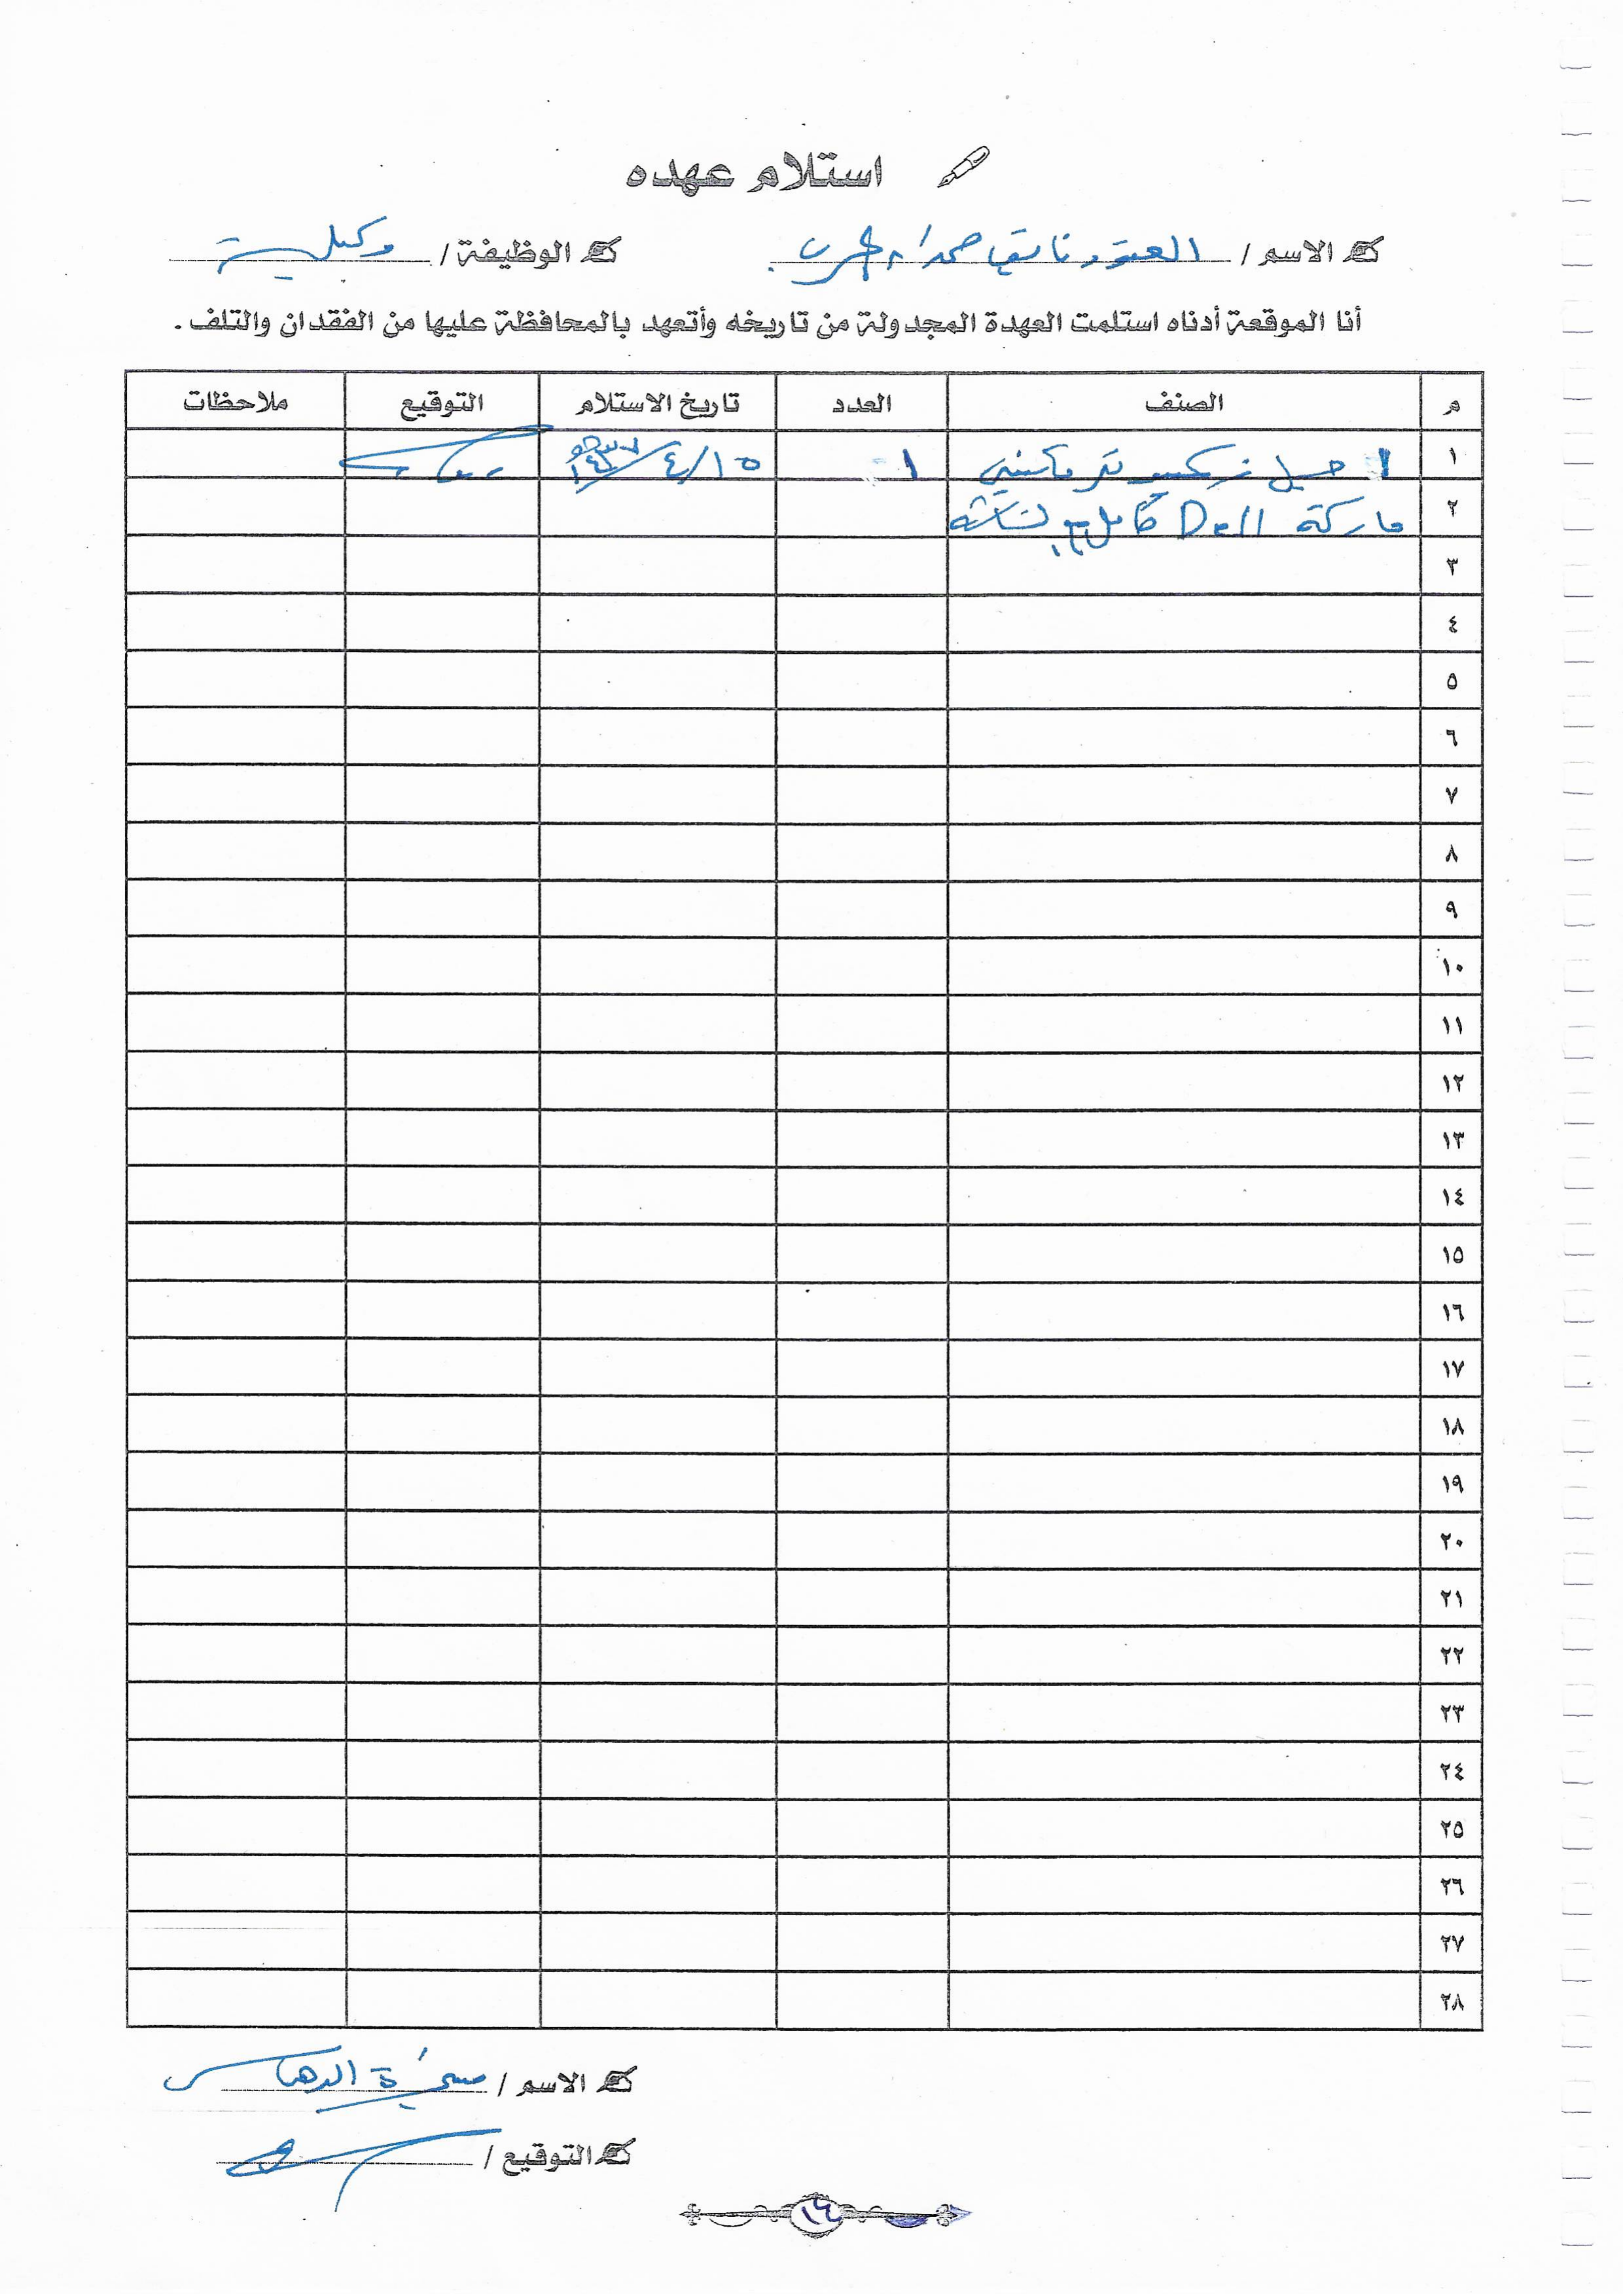 استلام عهده
الاسم / الوظيفة / وكيلة
أنا الموقعة أدناه استلمت العهدة المجدولة من تاريخه وأتعهد بالمحافظة عليها من الفقدان والتلف .
م الصنف العدد تاريخ الاستلام التوقيع ملاحظات
١ ١ ١٥/٤/١٤٣٧هـ
٢ ماركة Dell كامل
٣
٤
٥
٦
٧
٨
٩
١٠
١١
١٢
١٣
١٤
١٥
١٦
١٧
١٨
١٩
٢٠
٢١
٢٢
٢٣
٢٤
٢٥
٢٦
٢٧
٢٨
الاسم /
التوقيع /
١٤